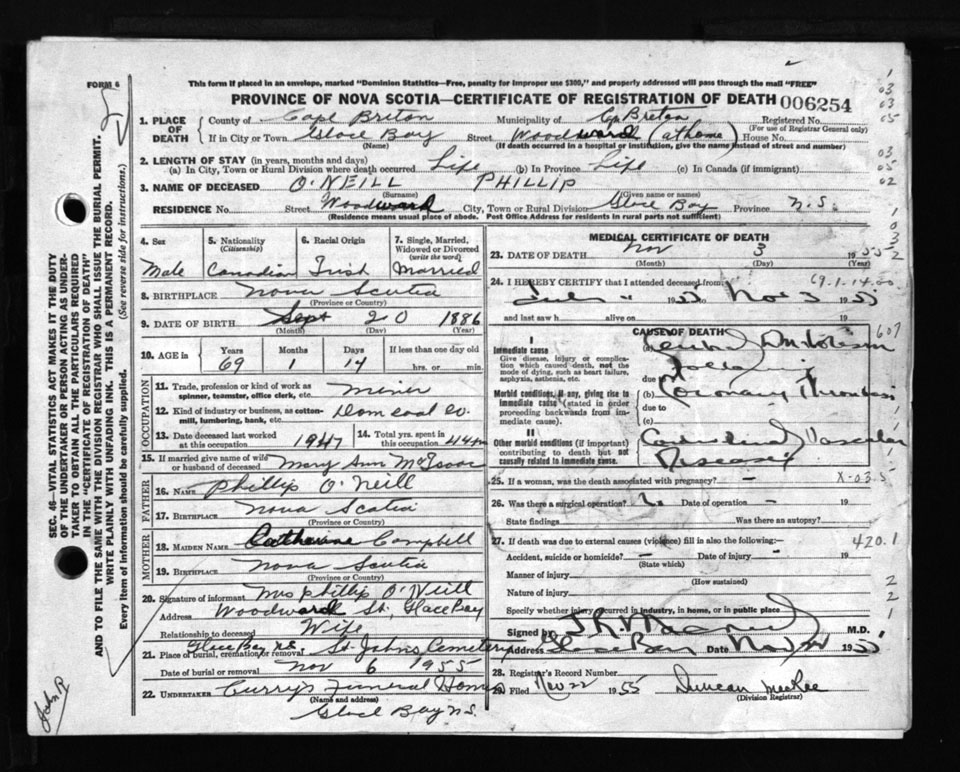 FORM 6
This form if placed in an envelope, marked "Dominion Statistics—Free, penalty for improper use $300," and properly addressed will pass through the mail "FREE"
PROVINCE OF NOVA SCOTIA—CERTIFICATE OF REGISTRATION OF DEATH 006254
1. PLACE OF DEATH County of Cape Breton Municipality of C. Breton Registered No.
(For use of Registrar General only)
If in City or Town Glace Bay Street Woodward (at home) House No.
(Name) (If death occurred in a hospital or institution, give the name instead of street and number)
2. LENGTH OF STAY (in years, months and days)
(a) In City, Town or Rural Division where death occurred Life (b) In Province Life (c) In Canada (if immigrant)
3. NAME OF DECEASED O'NEILL PHILLIP
(Surname) (Given name or names)
RESIDENCE No. Street Woodward City, Town or Rural Division Glace Bay Province N.S.
(Residence means usual place of abode. Post Office Address for residents in rural parts not sufficient)
4. Sex 5. Nationality (Citizenship) 6. Racial Origin 7. Single, Married, Widowed or Divorced (write the word)
Male Canadian Irish Married
8. BIRTHPLACE Nova Scotia
(Province or Country)
9. DATE OF BIRTH Sept 20 1886
(Month) (Day) (Year)
10. AGE in Years Months Days If less than one day old
69 1 14 hrs. or min.
OCCUPATION
11. Trade, profession or kind of work as spinner, teamster, office clerk, etc. Miner
12. Kind of industry or business, as cotton-mill, lumbering, bank, etc. Dom Coal Co.
13. Date deceased last worked at this occupation 1947 14. Total yrs. spent in this occupation 44
15. If married give name of wife or husband of deceased Mary Ann McIsaac
FATHER
16. NAME Phillip O'Neill
17. BIRTHPLACE Nova Scotia
(Province or Country)
MOTHER
18. MAIDEN NAME Catherine Campbell
19. BIRTHPLACE Nova Scotia
(Province or Country)
20. Signature of informant Mrs Phillip O'Neill
Address Woodward St. Glace Bay
Relationship to deceased Wife
Glace Bay N.S.
21. Place of burial, cremation or removal St. Johns Cemetery
Date of burial or removal Nov 6 1955
22. UNDERTAKER Curry's Funeral Home
(Name and address)
Glace Bay N.S.
MEDICAL CERTIFICATE OF DEATH
23. DATE OF DEATH Nov 3 1955
(Month) (Day) (Year)
69.1.14.00
24. I HEREBY CERTIFY that I attended deceased from
1955 Nov 3 1955
and last saw h alive on 19
CAUSE OF DEATH
607
I
Immediate cause
Give disease, injury or complication which caused death, not the mode of dying, such as heart failure, asphyxia, asthenia, etc.
(a)
due to
Following
Morbid conditions, if any, giving rise to immediate cause (stated in order proceeding backwards from immediate cause)
(b) Coronary Thrombosis
due to
(c)
II
Other morbid conditions (if important) contributing to death but not causally related to immediate cause.
Vascular
Disease
25. If a woman, was the death associated with pregnancy? - X-03.5
26. Was there a surgical operation? Date of operation - 19
State findings Was there an autopsy?
27. If death was due to external causes (violence) fill in also the following:- 420.1
Accident, suicide or homicide? - Date of injury - 19
(State which)
Manner of injury
(How sustained)
Nature of injury
Specify whether injury occurred in industry, in home, or in public place
Signed by M.D.
Address Glace Bay Date 1955
28. Registrar's Record Number
29. Filed Nov 22 1955 Duncan McRae
(Division Registrar)
SEC. 46—VITAL STATISTICS ACT MAKES IT THE DUTY
OF THE UNDERTAKER OR PERSON ACTING AS UNDER-
TAKER TO OBTAIN ALL THE PARTICULARS REQUIRED
IN THE "CERTIFICATE OF REGISTRATION OF DEATH"
AND TO FILE THE SAME WITH THE DIVISION REGISTRAR WHO SHALL ISSUE THE BURIAL PERMIT.
WRITE PLAINLY WITH UNFADING INK. THIS IS A PERMANENT RECORD.
Every item of information should be carefully supplied. (See reverse side for instructions.)
1
03
03
05
03
05
02
1
0
3
2
1
2
2
1